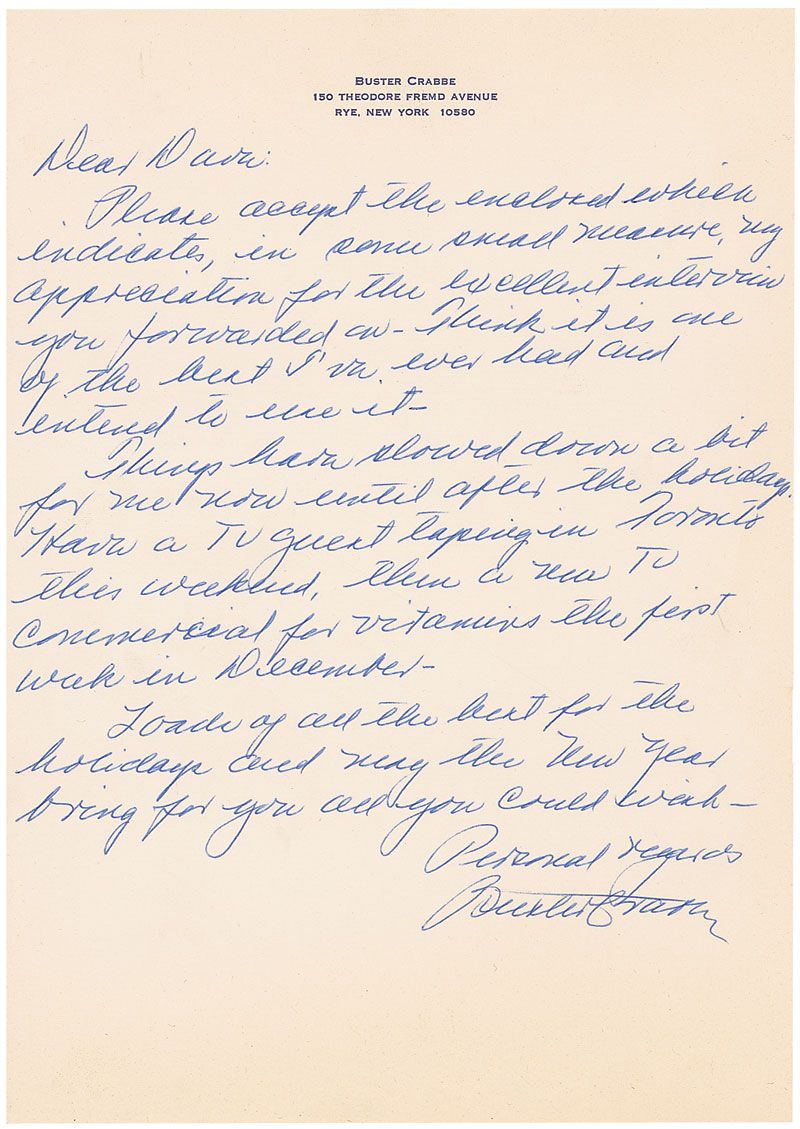 BUSTER CRABBE
150 THEODORE FREMD AVENUE
RYE, NEW YORK 10580
Dear Dave:
Please accept the enclosed which
indicates, in some small measure, my
appreciation for the excellent interview
you forwarded on - Think it is one
of the best I've ever had and
intend to use it -
Things have slowed down a bit
for me now until after the holidays.
Have a TV guest taping in Toronto
this weekend, then a new TV
commercial for vitamins the first
week in December -
Loads of all the best for the
holidays and may the New Year
bring for you all you could wish -
Personal regards
Buster Crabbe